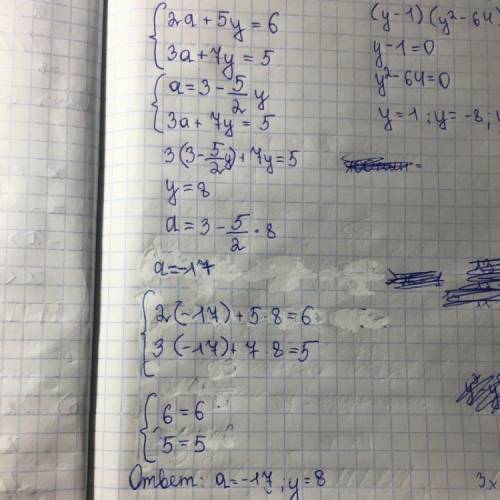 2a + 5y = 6
3a + 7y = 5
a = 3 - 5/2 y
3a + 7y = 5
3(3 - 5/2 y) + 7y = 5
y = 8
a = 3 - 5/2 · 8
a = -17
2(-17) + 5·8 = 6
3(-17) + 7·8 = 5
6 = 6
5 = 5
Ответ: a = -17; y = 8
(y-1)(y²-64
y-1=0
y²-64=0
y=1; y=-8;
3x